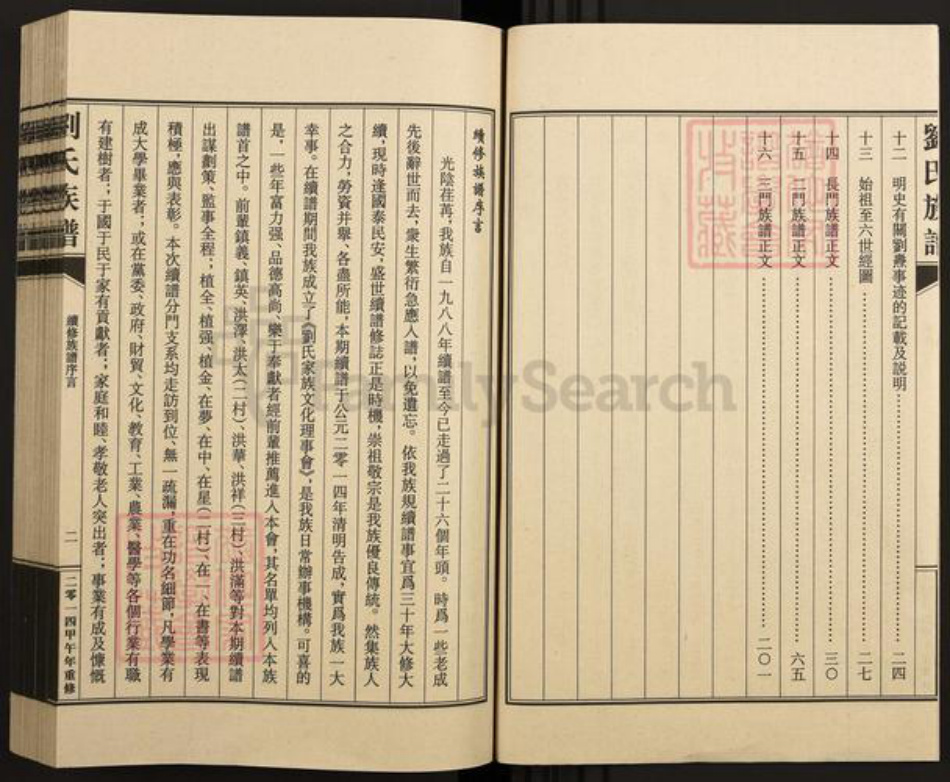 劉氏族譜
十二　明史有關劉㷞事迹的記載及説明……二四
十三　始祖至六世經圖……二七
十四　長門族譜正文……三〇
十五　二門族譜正文……六五
十六　三門族譜正文……二〇一
續修族譜序言
光陰荏苒，我族自一九八八年續譜至今已走過了二十六個年頭。時爲一些老成
先後辭世而去，衆生繁衍急應入譜，以免遺忘。依我族規續譜事宜爲三十年大修大
續，現時逢國泰民安，盛世續譜修誌正是時機，崇祖敬宗是我族優良傳統。然集族人
之合力，勞資并舉、各盡所能，本期續譜于公元二零一四年清明告成，實爲我族一大
幸事。在續譜期間我族成立了《劉氏家族文化理事會》，是我族日常辦事機構。可喜的
是，一些年富力强、品德高尚、樂于奉獻者經前輩推薦進入本會，其名單均列入本族
譜首之中。前輩鎮義、鎮英、洪澤、洪太（二村）、洪華、洪祥（三村）、洪滿等對本期續譜
出謀劃策、監事全程；植全、植强、植金、在夢、在中、在星（二村）、在一、在書等表現
積極，應與表彰。本次續譜分門支系均走訪到位、無一疏漏，重在功名細節，凡學業有
成大學畢業者；或在黨委、政府、財貿、文化、教育、工業、農業、醫學等各個行業有職
有建樹者；于國于民于家有貢獻者；家庭和睦、孝敬老人突出者；事業有成及慷慨
劉氏族譜
續修族譜序言
二
二零一四甲午年重修
FamilySearch